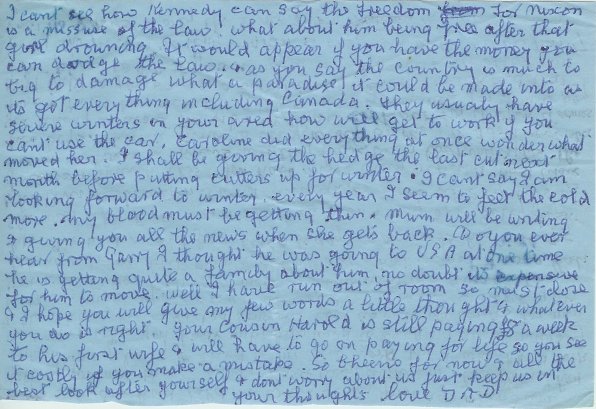 I cant see how Kennedy can say the Freedom for Nixon
is a missuse of the law. what about him being free after that
girl drouning It would appear if you have the money you
can dodge the law. & as you say the country is much to
big to damage what a paradise it could be made into as
its got every thing including Canada. They usualy have
severe winters in your area how will get to work if you
cant use the car. Caroline did every thing at once wonder what
moved her. I shall be giving the hedge the last cut next
month before putting cutters up for winter. I cant say I am
looking forward to winter every year I seem to feel the cold
more. my blood must be getting thin. Mum will be writing
& giving you all the news when she gets back. Do you ever
hear from Garry I thought he was going to USA at one time
he is getting quite a family about him no doubt its expensive
for him to move. Well I have run out of room so must close
& I hope you will give my few words a little thought & what ever
you do is right. Your Cousin Harold is still paying a week
to his first wife & will have to go on paying for life so you see
it costly if you make a mistake. So bheerio for now & all the
best look after yourself & dont worry about us just keep us in
your thoughts love DAD